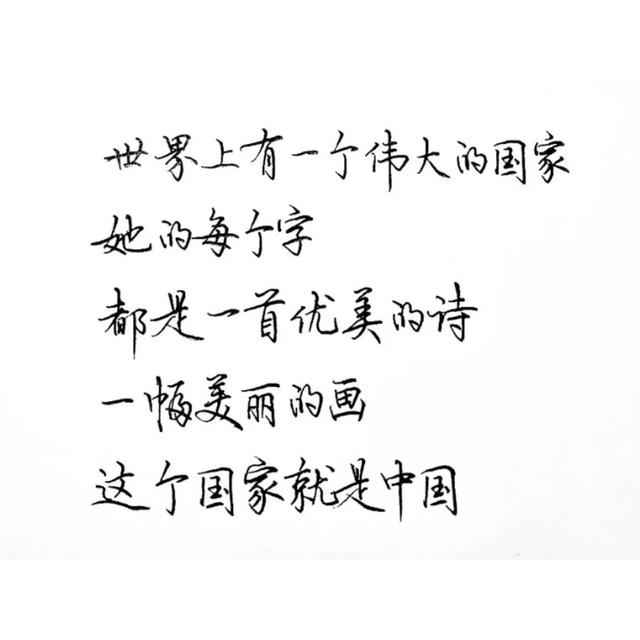 世界上有一个伟大的国家
她的每个字
都是一首优美的诗
一幅美丽的画
这个国家就是中国